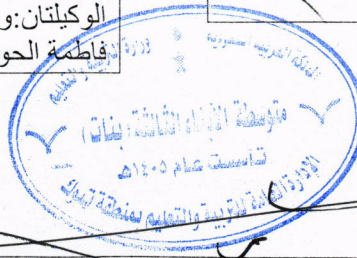 الوكيلتان:و
فاطمة الحو
المملكة العربية السعودية
وزارة التربية والتعليم
متوسطة الأبناء الثالثة (بنات)
تأسست عام ١٤٠٥هـ
الإدارة العامة للتربية والتعليم بمنطقة تبوك